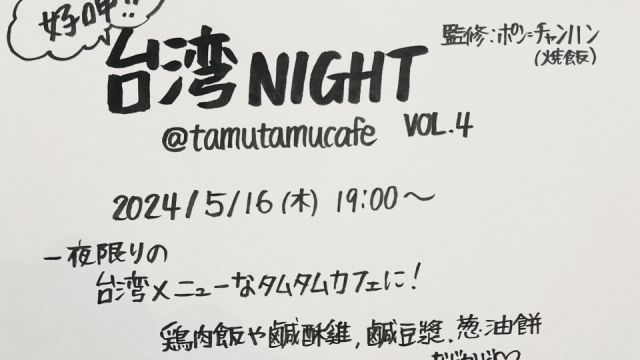 好呷
台湾NIGHT
監修:ポン=チャンハン
(焼飯)
@tamutamucafe VOL.4
2024/5/16(木) 19:00～
一夜限りの
台湾メニューなタムタムカフェに!
鶏肉飯や鹹酥雞,鹹豆漿,葱油餅